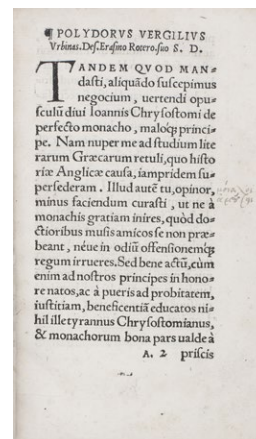 ¶ POLYDORVS VERGILIVS
Vrbinas. Des. Erasmo Rotero. suo S. D.
TANDEM QVOD MAN⸗
dasti, aliquãdo suscepimus
negocium, uertendi opu⸗
sculũ diui Ioannis Chrysostomi de
perfecto monacho, maloq́; princi⸗
pe. Nam nuper me ad studium lite
rarum Græcarum retuli, quo histo
riæ Anglicæ causa, iampridem su⸗
persederam. Illud autẽ tu, opinor,
minus faciendum curasti, ut ne à
monachis gratiam inires, quòd do⸗
ctioribus musis amicos se non præ⸗
beant, néue in odiũ offensionemq́;
regum irrueres. Sed bene actũ, cùm
enim ad nostros principes in hono⸗
re natos, ac à pueris ad probitatem,
iustitiam, beneficentiã educatos ni⸗
hil ille tyrannus Chrysostomianus,
& monachorum bona pars ualde à
A. 2 priscis